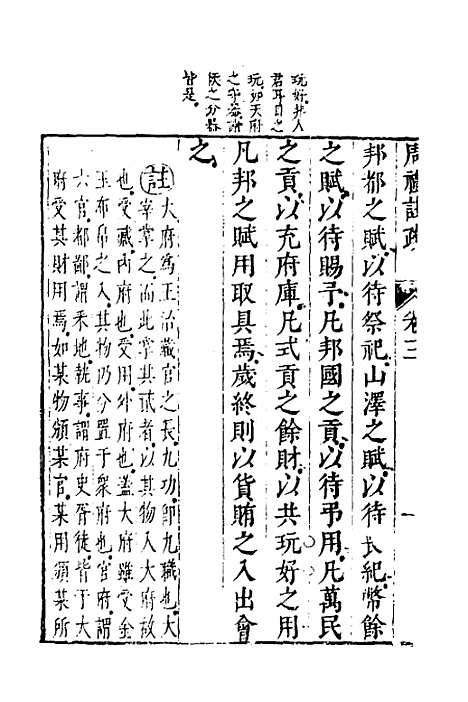 周禮註疏
卷三
一
邦都之賦以待祭祀山澤之賦以待喪紀幣餘
之賦以待賜予凡邦國之貢以待弔用凡萬民
之貢以充府庫凡式貢之餘財以共玩好之用
凡邦之賦用取具焉歲終則以貨賄之入出會
之
註大府為王治藏官之長九功即九職也大
宰掌之而此掌其貳者以其物入大府故
也受藏內府也受用外府也蓋大府雖受金
玉布帛之入其物仍分置于衆府也官府謂
六官都鄙謂采地執事謂府史胥徒皆于大
府受其財用焉如某物頒某官某用頒某所
玩好非人
君耳目之
玩如天府
之守藏諸
侯之分器
皆是